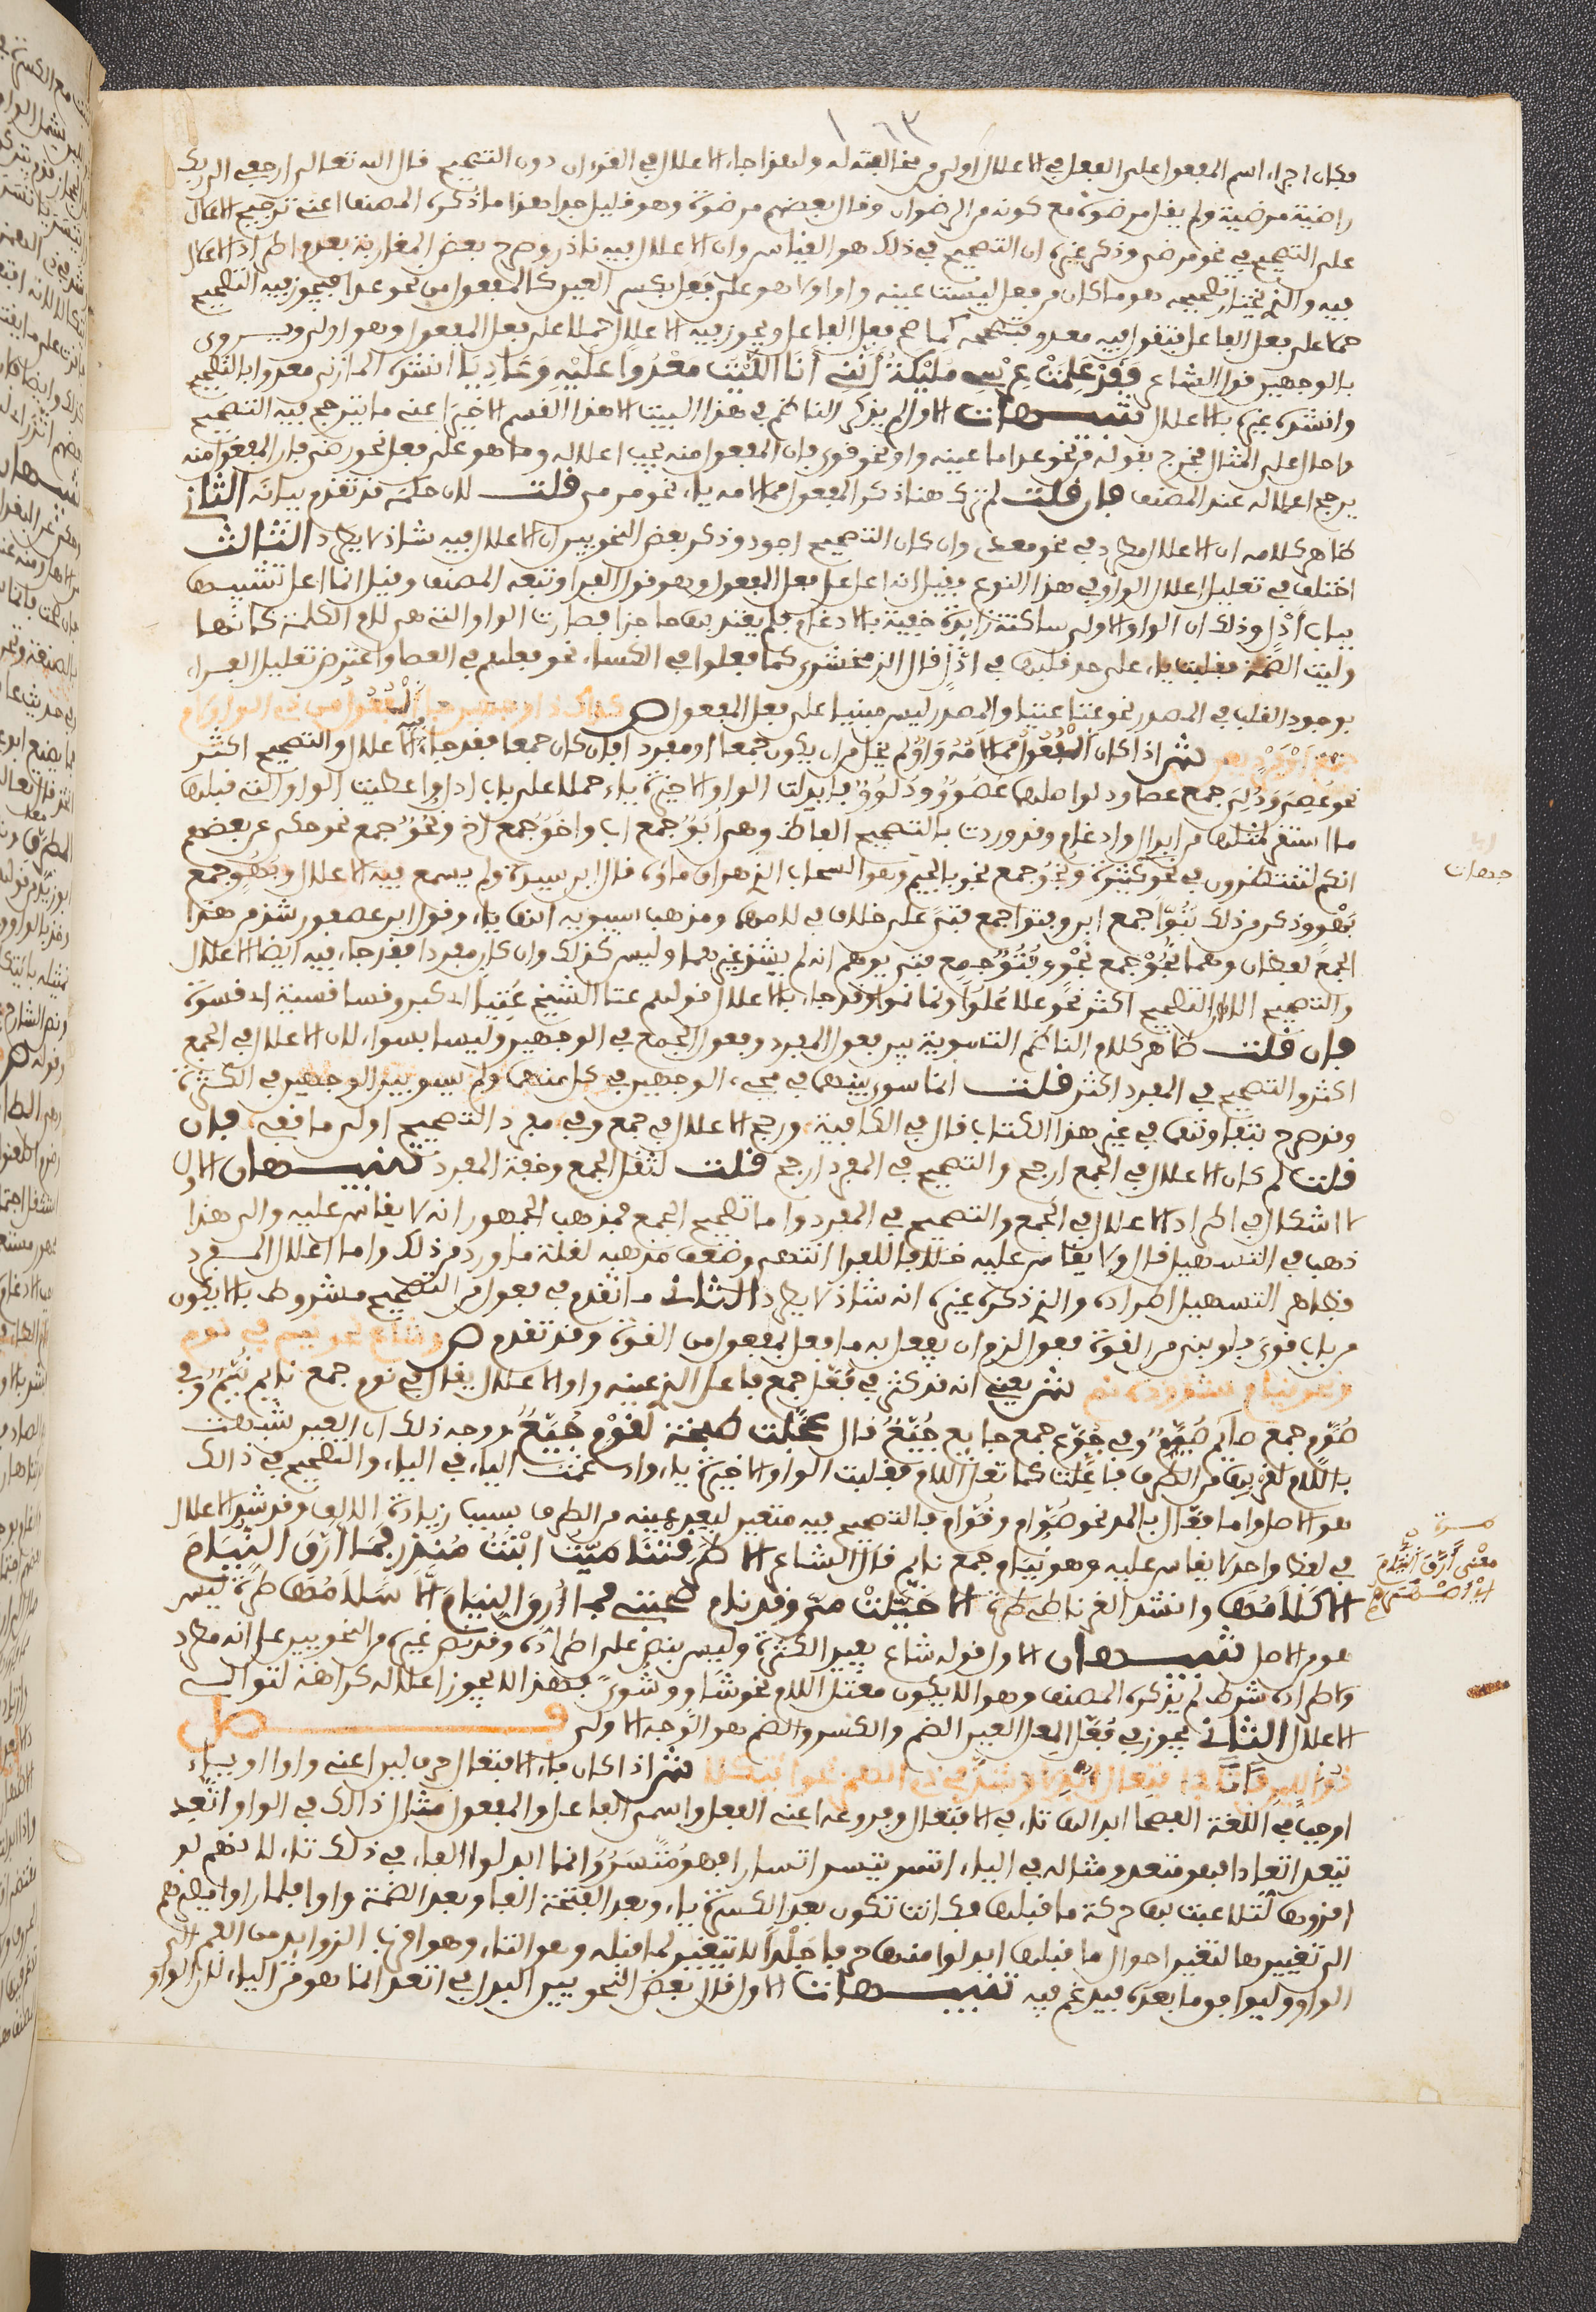 فكان اجراء اسم المفعول على الفعل في الاعلال اولى من مخالفته له ولهذا جاء الاعلال في القرءان دون التصحيح قال الله تعالى ارجعي الى ربك
راضية مرضية ولم يقل مرضوة مع كونه من الرضوان وقرا بعضهم مرضوة وهو قليل جدا هذا ما ذكره المصنف اعني ترجيح الاعلال
على التصحيح في نحو مرضي وذكر غيره ان التصحيح في ذلك هو القياس وان الاعلال فيه شاذ وصرح بعض المغاربة بعدم اطراد الاعلال
فيه والذي يختار تصحيحه هو ما كان من فعل ليست عينه واوا ولا هو على فعل بكسر العين كالمفعول من نحو عدا فيجوز فيه التصحيح
حملا على فعل الفاعل فتقول فيه معدو فتصححه كما صح فعل الفاعل ويجوز فيه الاعلال حملا على فعل المفعول وهو اولى ويروى
بالوجهين قول الشاعر وَقَدْ عَلِمَتْ عِرْسِي مُلَيْكَةُ أَنَّنِي أَنَا اللَّيْثُ مَعْدُوًّا عَلَيْهِ وَعَادِيَا انشده المازني معدوا بالتصحيح
وانشده غيره بالاعلال تنبيهات الاول لم يذكر الناظم في هذا البيت الا هذا القسم الاخير اعني ما يترجح فيه التصحيح
واحال على المثال فخرج بقوله من نحو عدا ما عينه واو نحو قوي فان المفعول منه يجب اعلاله وما هو على فعل نحو رضي فان المفعول منه
يرجح اعلاله عند المصنف فان قلت لم ترك هنا ذكر المفعول مما لامه ياء نحو مرمي قلت لان حكمه قد تقدم بيانه الثاني
ظاهر كلامه ان الاعلال مطرد في نحو معدي وان كان التصحيح اجود وذكر بعض النحويين ان الاعلال فيه شاذ لا يطرد الثالث
اختلف في تعليل اعلال الواو في هذا النوع فقيل انه اعل على فعل المفعول وهو قول الفراء وتبعه المصنف وقيل انما اعل تشبيها
بباب أَدْلٍ وذلك ان الواو الاولى ساكنة زايدة خفية بالادغام فلم يعتد بها حاجزا فصارت الواو التي هي لام الكلمة كانها
وليت الضمة فقلبت ياء على حد قلبها في ادْلٍ قال الزمخشري كما فعلوا في الكساء نحو فعلهم في العصا واعترض تعليل الفراء
بوجود القلب في المصدر نحو عتا عتيا والمصدر ليس مبنيا على فعل المفعول ص كذاك ذا وجهين جا الْفُعُولُ مِن ذي الواو لام
جمع أَوْ فَرْدٍ يعن ش اذا كان الْفُعُولُ مما لامُهُ وَاوٌ لم يخل من ان يكون جمعا او مفردا فان كان جمعا فقد جاء فيه الاعلال والتصحيح اكثر
نحو عُصِيٍّ ودُلِيٍّ جمع عصا ودلو اصلهما عُصُوْوٌ ودُلُوْوٌ فابدلت الواو الاخيرة ياء حملا على باب ادلٍ واعطيت الواو التي قبلها
ما استقر لمثلها من ابدال وادغام وقد وردت بالتصحيح الفاظ وهي أُبُوٌّ جمع اب واخُوٌّ جمع اخ ونُحُوٌّ جمع نحو حكى عن بعضهم
انكم لتنظرون في نحو كثيرة ونُجُوٌّ جمع نجو بالجيم وهو السحاب الذي هراق ماؤه قال ابن سيدة ولم يسمع فيه الاعلال وبُهُوٌّ جمع
بَهْوٍ وذكر من ذلك بُنُوًّا جمع ابن وفُتُوًّا جمع فتىً على خلاف في لامهما ومذهب سيبويه انها ياء وقول ابن عصفور شذ من هذا
الجمع لفظان وهما نُجُوٌّ جمع نَجْوٍ وفُتُوٌّ جمع فتى يوهم انه لم يشذ غيرهما وليس كذلك وان كان مفردا فقد جاء فيه ايضا الاعلال
والتصحيح الا ان التصحيح اكثر نحو علا عُلُوًّا ونما نموا وقد جاء بالاعلال قولهم عتا الشيخ عُتِيًّا اذا كبر وقسا قسيا اي قسوة
فان قلت ظاهر كلام الناظم التسوية بين فعول المفرد وفعول الجمع في الوجهين وليسا بسواء لان الاعلال في الجمع
اكثر والتصحيح في المفرد اكثر قلت انما سوى بينهما في مجيء الوجهين في كل منهما ولم يسو بين الوجهين في الكثرة
وقد صرح بتفاوتهما في غير هذا الكتاب قال في الكافية ورجح الاعلال في جمع وفي مفرد التصحيح اولى ما قفي فان
قلت لم كان الاعلال في الجمع ارجح والتصحيح في المفرد ارجح قلت لثقل الجمع وخفة المفرد تنبيهان الاول
لا اشكال في اطراد الاعلال في الجمع والتصحيح في المفرد واما تصحيح الجمع فمذهب الجمهور انه لا يقاس عليه والى هذا
ذهب في التسهيل قال ولا يقاس عليه خلافا للفرا انتهى وضعف مذهبه لقلة ما ورد من ذلك واما اعلال المفرد
فظاهر التسهيل اطراده والذي ذكره غيره انه شاذ لا يطرد الثاني ما تقدم في فعول من التصحيح مشروط بالا يكون
من باب قوي فلو بني من القوة فعول لزم ان يفعل به ما فعل بمفعول من القوة وقد تقدم ص وشاع نحو نيم في نوم
ونحو نيام شذوذه نمي ش يعني انه قد كثر في فُعَّل جمع فاعل الذي عينه واو الاعلال يقال في نوم جمع نايم نُيَّم وفي
صُوَّم جمع صايم صُيَّم وفي جُوَّع جمع جايع جُيَّع قال عجلت طبخته لقوم جُيَّع ووجه ذلك ان العين شبهت
باللام لقربها من الطرف فاعلت كما تعل اللام فقلبت الواو الاخيرة ياء وادغمت الياء في الياء والتصحيح في ذالك
هو الاصل واما فعّال بالمد نحو صُوَّام ونُوَّام فالتصحيح فيه متعين لبعد عينه من الطرف بسبب زيادة الالف وقد شذ الاعلال
في لفظ واحد لا يقاس عليه وهو نُيَّام جمع نايم قال الشاعر الا طرقتنا ميّة ابنت مُنذر فما ارّق النيام
الا كلامُها وانشد الغرناطي طرة الا خَيَّلَتْ مي وقد نام صحبتي فما ارّق النيام الا سلامُها طرة ليس
هو الاصل تنبيهان الاول قوله شاع يفيد الكثرة وليس بنص على اطراده وقد نص غيره من النحويين على انه مطرد
ولاطراده شرط لم يذكره المصنف وهو الا يكون معتل اللام نحو شاوٍ وشُوًّى فهذا لا يجوز اعلاله كراهة لتوالي
الاعلال الثاني يجوز في فُعَّل المعل العين الضم والكسر والضم هو الوجه الاولى فصل
ذو اللين فا تا في افتعال ابدلا وشذ في ذي الهمز نحو ايتكلا ش اذا كان فاء الافتعال حرف لين اعني واوا او ياء
اوجب في اللغة الفصحا ابدالها تاء في الافتعال وفروعه اعني الفعل واسمي الفاعل والمفعول مثال ذالك في الواو اتّعد
يتعد اتعادا فهو متعد ومثاله في الياء اتسر يتسر اتسارا فهو مُتَّسَرٌ وانما ابدلوا الفاء في ذلك تاء لانهم لو
اقروها لتلاعبت بها حركة ما قبلها فكانت تكون بعد الكسرة ياء وبعد الفتحة الفا وبعد الضمة واوا فلما راوا مصيرهم
الى تغييرها لتغير احوال ما قبلها ابدلوا منها حرفا جَلْدًا لا يتغير لما قبله وهو التاء وهو اقرب الزوايد من الفم الى
الواو وليوافق ما بعده فيدغم فيه تنبيهات الاول قال بعض النحويين البدل في اتعد انما هو من الياء لان الواو
جبهات
معنى أَرَّقَ النُّيَّامَ